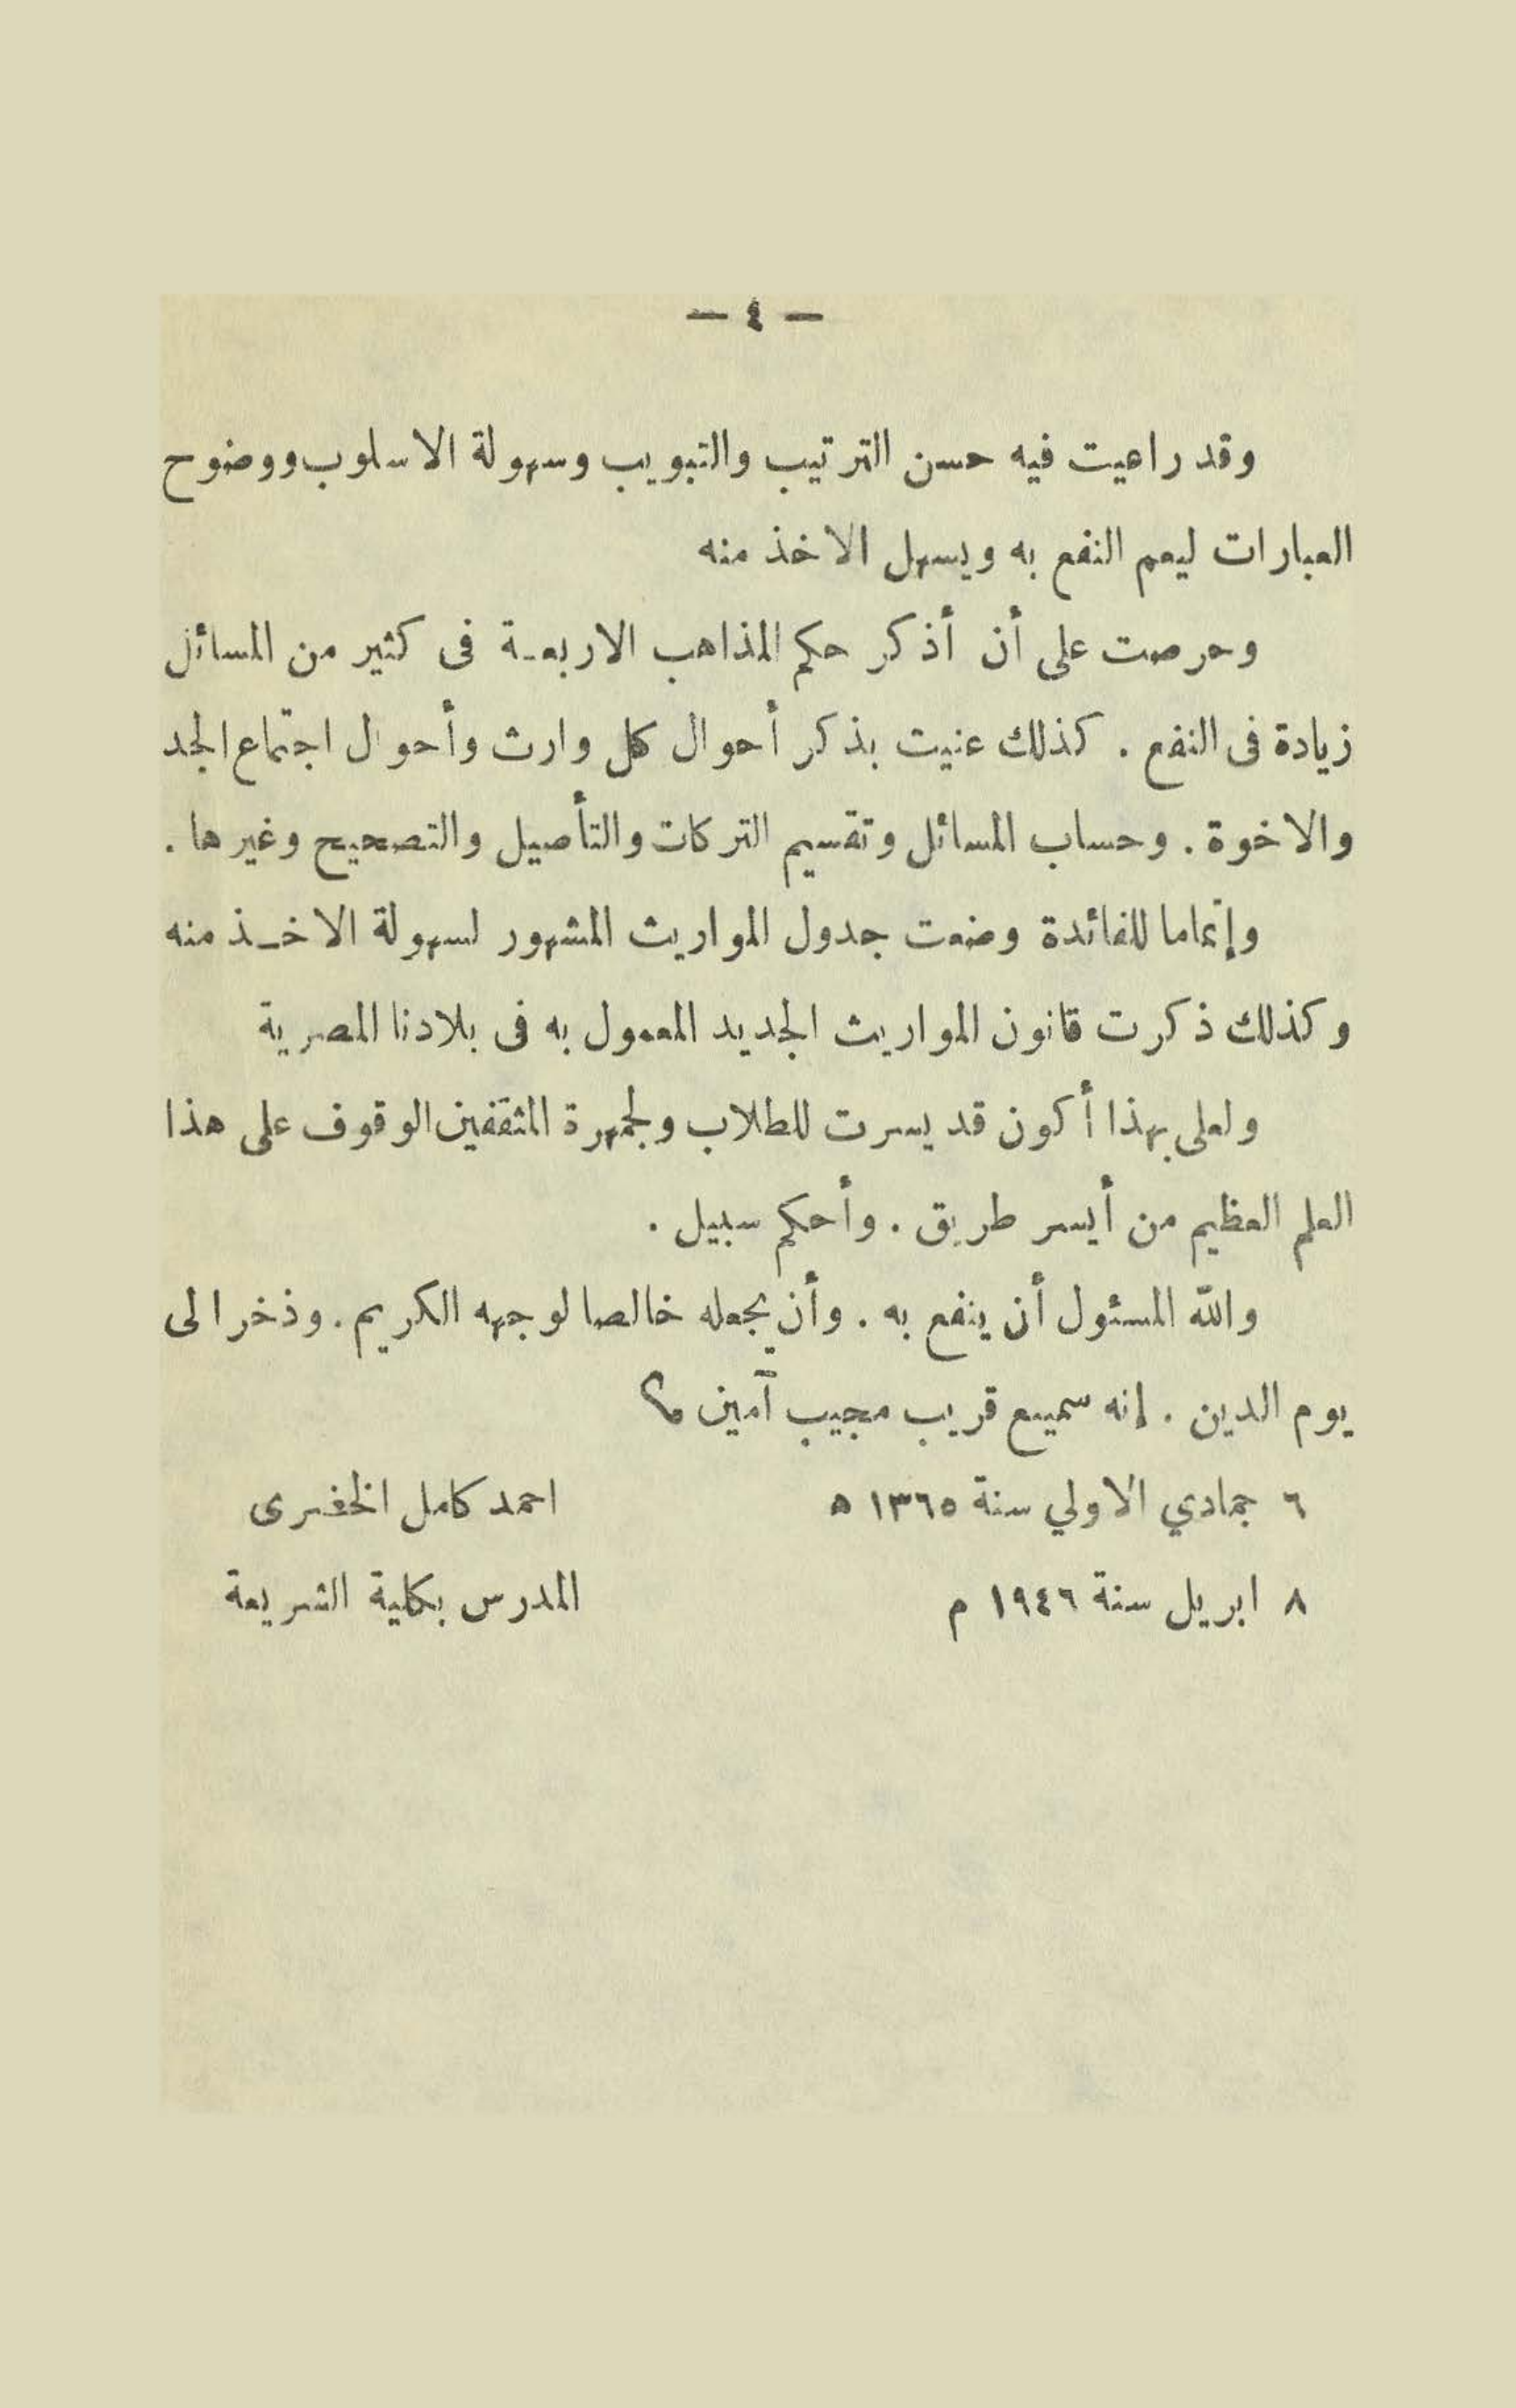 — ٤ —
وقد راعيت فيه حسن الترتيب والتبويب وسهولة الاسلوب ووضوح
العبارات ليعم النفع به ويسهل الاخذ منه
وحرصت على أن أذكر حكم المذاهب الاربعـة فى كثير من المسائل
زيادة فى النفع . كذلك عنيت بذكر أحوال كل وارث وأحوال اجتماع الجد
والاخوة . وحساب المسائل وتقسيم التركات والتأصيل والتصحيح وغيرها .
وإتماما للفائدة وضعت جدول المواريث المشهور لسهولة الاخـذ منه
وكذلك ذكرت قانون المواريث الجديد المعمول به فى بلادنا المصرية
ولعلى بهذا أكون قد يسرت للطلاب ولجمهرة المثقفين الوقوف على هذا
العلم العظيم من أيسر طريق . وأحكم سبيل .
والله المسئول أن ينفع به . وأن يجعله خالصا لوجهه الكريم . وذخرا لى
يوم الدين . إنه سميع قريب مجيب آمين
٦ جمادي الاولي سنة ١٣٦٥ ه احمد كامل الخضرى
٨ ابريل سنة ١٩٤٦ م المدرس بكلية الشريعة